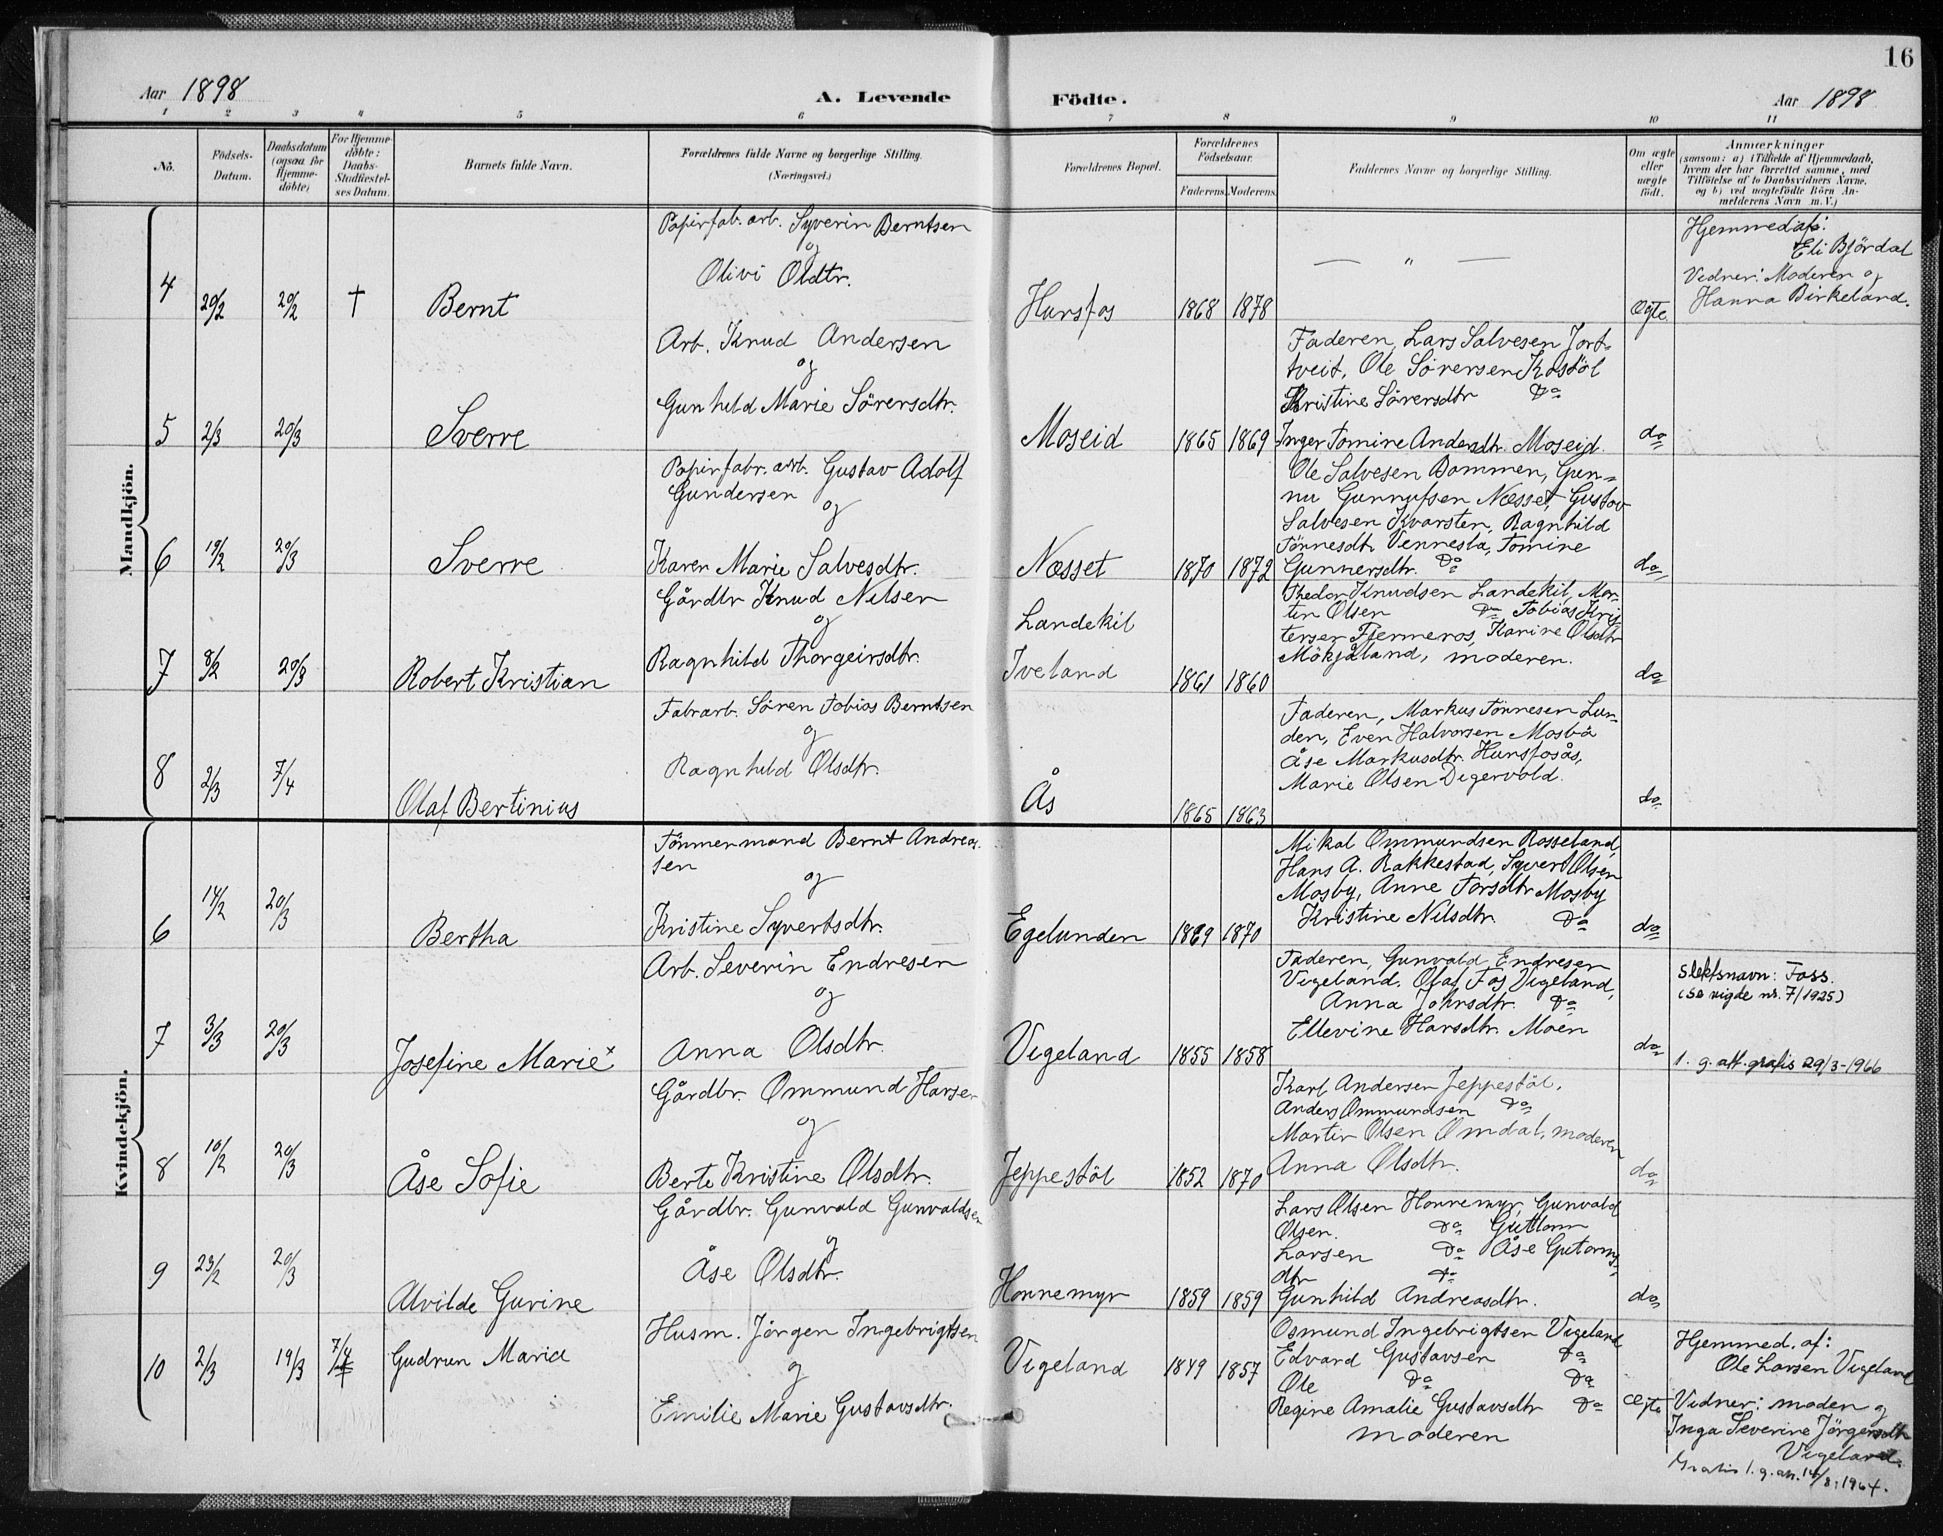 16
Aar 1898
A. Levende
Födte.
Aar 1898
1 2 3 4 5 6 7 8 9 10 11
No.
Födsels-
Datum.
Daabsdatum
(ogsaa for
Hjemme-
döbte)
For Hjemme-
döbte:
Daabs-
Stadfæstel-
ses Datum.
Barnets fulde Navn.
Forældrenes fulde Navne og borgerlige Stilling.
(Næringsvei.)
Forældrenes Bopæl.
Forældrenes
Födselsaar.
Faderens. Moderens.
Faddernes Navne og borgerlige Stilling.
Om ægte
eller
uægte
födt.
Anmærkninger
(saasom: a) i Tilfælde af Hjemmedaab,
hvem der har forrettet samme, med
Tilföielse af to Daabsvidners Navne.
og b) ved uægtefödte Börn An-
melderens Navn m. V.)
Mandkjön.
4
20/2
20/2
†
Bernt
Papirfab. arb. Syverin Berntsen
og
Olivi Olsdtr.
Hunsfos
1868
1878
— " —
Ægte.
Hjemmedöbt af:
Eli Björdal
Vidner: Moderen og
Hanna Birkeland.
5
2/3
20/3
Sverre
Arb. Knud Andersen
og
Gunhild Marie Sörensdtr.
Moseid
1865
1869
Faderen, Lars Salvesen Jort-
tveit, Ole Sörensen Kostöl
Kristine Sörensdtr Do
Inger Tomine Andersdtr. Moseid.
do
6
19/2
20/3
Sverre
Papirfabr. arb. Gustav Adolf
Gundersen
og
Karen Marie Salvesdtr.
Næsset
1870
1872
Ole Salvesen Dommen, Gun-
nu Gunnufsen Næsset, Gustav
Salvesen Kvarsten, Ragnhild
Tönnesdtr Vennesla, Tomine
Gunnersdtr. Do
do
7
8/2
20/3
Robert Kristian
Gårdbr Knud Nilsen
og
Ragnhild Thorgeirsdtr.
Landekil
Iveland
1861
1860
Thedor Knudsen Landekil, Mor-
ten Olsen Do Tobias Kris-
tensen Fjermeros, Karine Olsdtr
Mökjåland, moderen.
do
8
2/3
7/4
Olaf Bertinius
Fabrarb. Sören Tobias Berntsen
og
Ragnhild Olsdtr.
Ås
1865
1863
Faderen, Markus Tönnesen Lun-
den, Even Halvorsen Mosbö
Åse Markusdtr. Hunsfosås,
Marie Olsen Digervold.
do
Kvindekjön.
6
14/2
20/3
Bertha
Tömmermand Bernt Andreas-
sen
og
Kristine Syvertsdtr.
Egelunden
1869
1870
Mikal Ommundsen Rosseland,
Hans A. Rakkestad, Syvert Olsen
Mosby, Anne Torsdtr Mosby
Kristine Nilsdtr. Do
do
7
3/3
20/3
Josefine Marie x
Arb. Severin Endresen
og
Anna Olsdtr.
Vigeland
1855
1858
Faderen, Gunvald Endresen
Vigeland. Olaf Fos Vigeland,
Anna Johnsdtr. Do
Ellevine Hansdtr. Moen
do
Slektsnavn: Foss.
(se vigde nr. 7/1925)
1. g. att. gratis 29/3-1966
8
10/2
20/3
Åse Sofie
Gårdbr. Ommund Hansen
og
Berte Kristine Olsdtr.
Jeppestöl
1852
1870
Karl Andersen Jeppestöl,
Anders Ommundsen Do
Martin Olsen Omdal, moderen
Anna Olsdtr.
do
9
23/2
20/3
Alvilde Gurine
Gårdbr. Gunvald Gunvaldsen
og
Åse Olsdtr.
Honnemyr
1859
1859
Lars Olsen Honnemyr, Gunvald
Olsen. Do Guttorm
Larsen Do Åse Gutorms-
dtr Do
Gunhild Andreasdtr.
do
10
2/3
19/3
7/4
Gudrun Maria
Husm. Jörgen Ingebrigtsen
og
Emilie Marie Gustavsdtr.
Vigeland
1849
1857
Osmund Ingebrigtsen Vigeland
Edvard Gustavsen Do
Ole Do Do
Regine Amalie Gustavsdtr Do
moderen
Ægte
Hjemmed. af:
Ole Larsen Vigeland
Vidner: moden og
Inga Severine Jörgensdtr
Vigeland.
Gratis 1. g. att. 14/8, 1964.